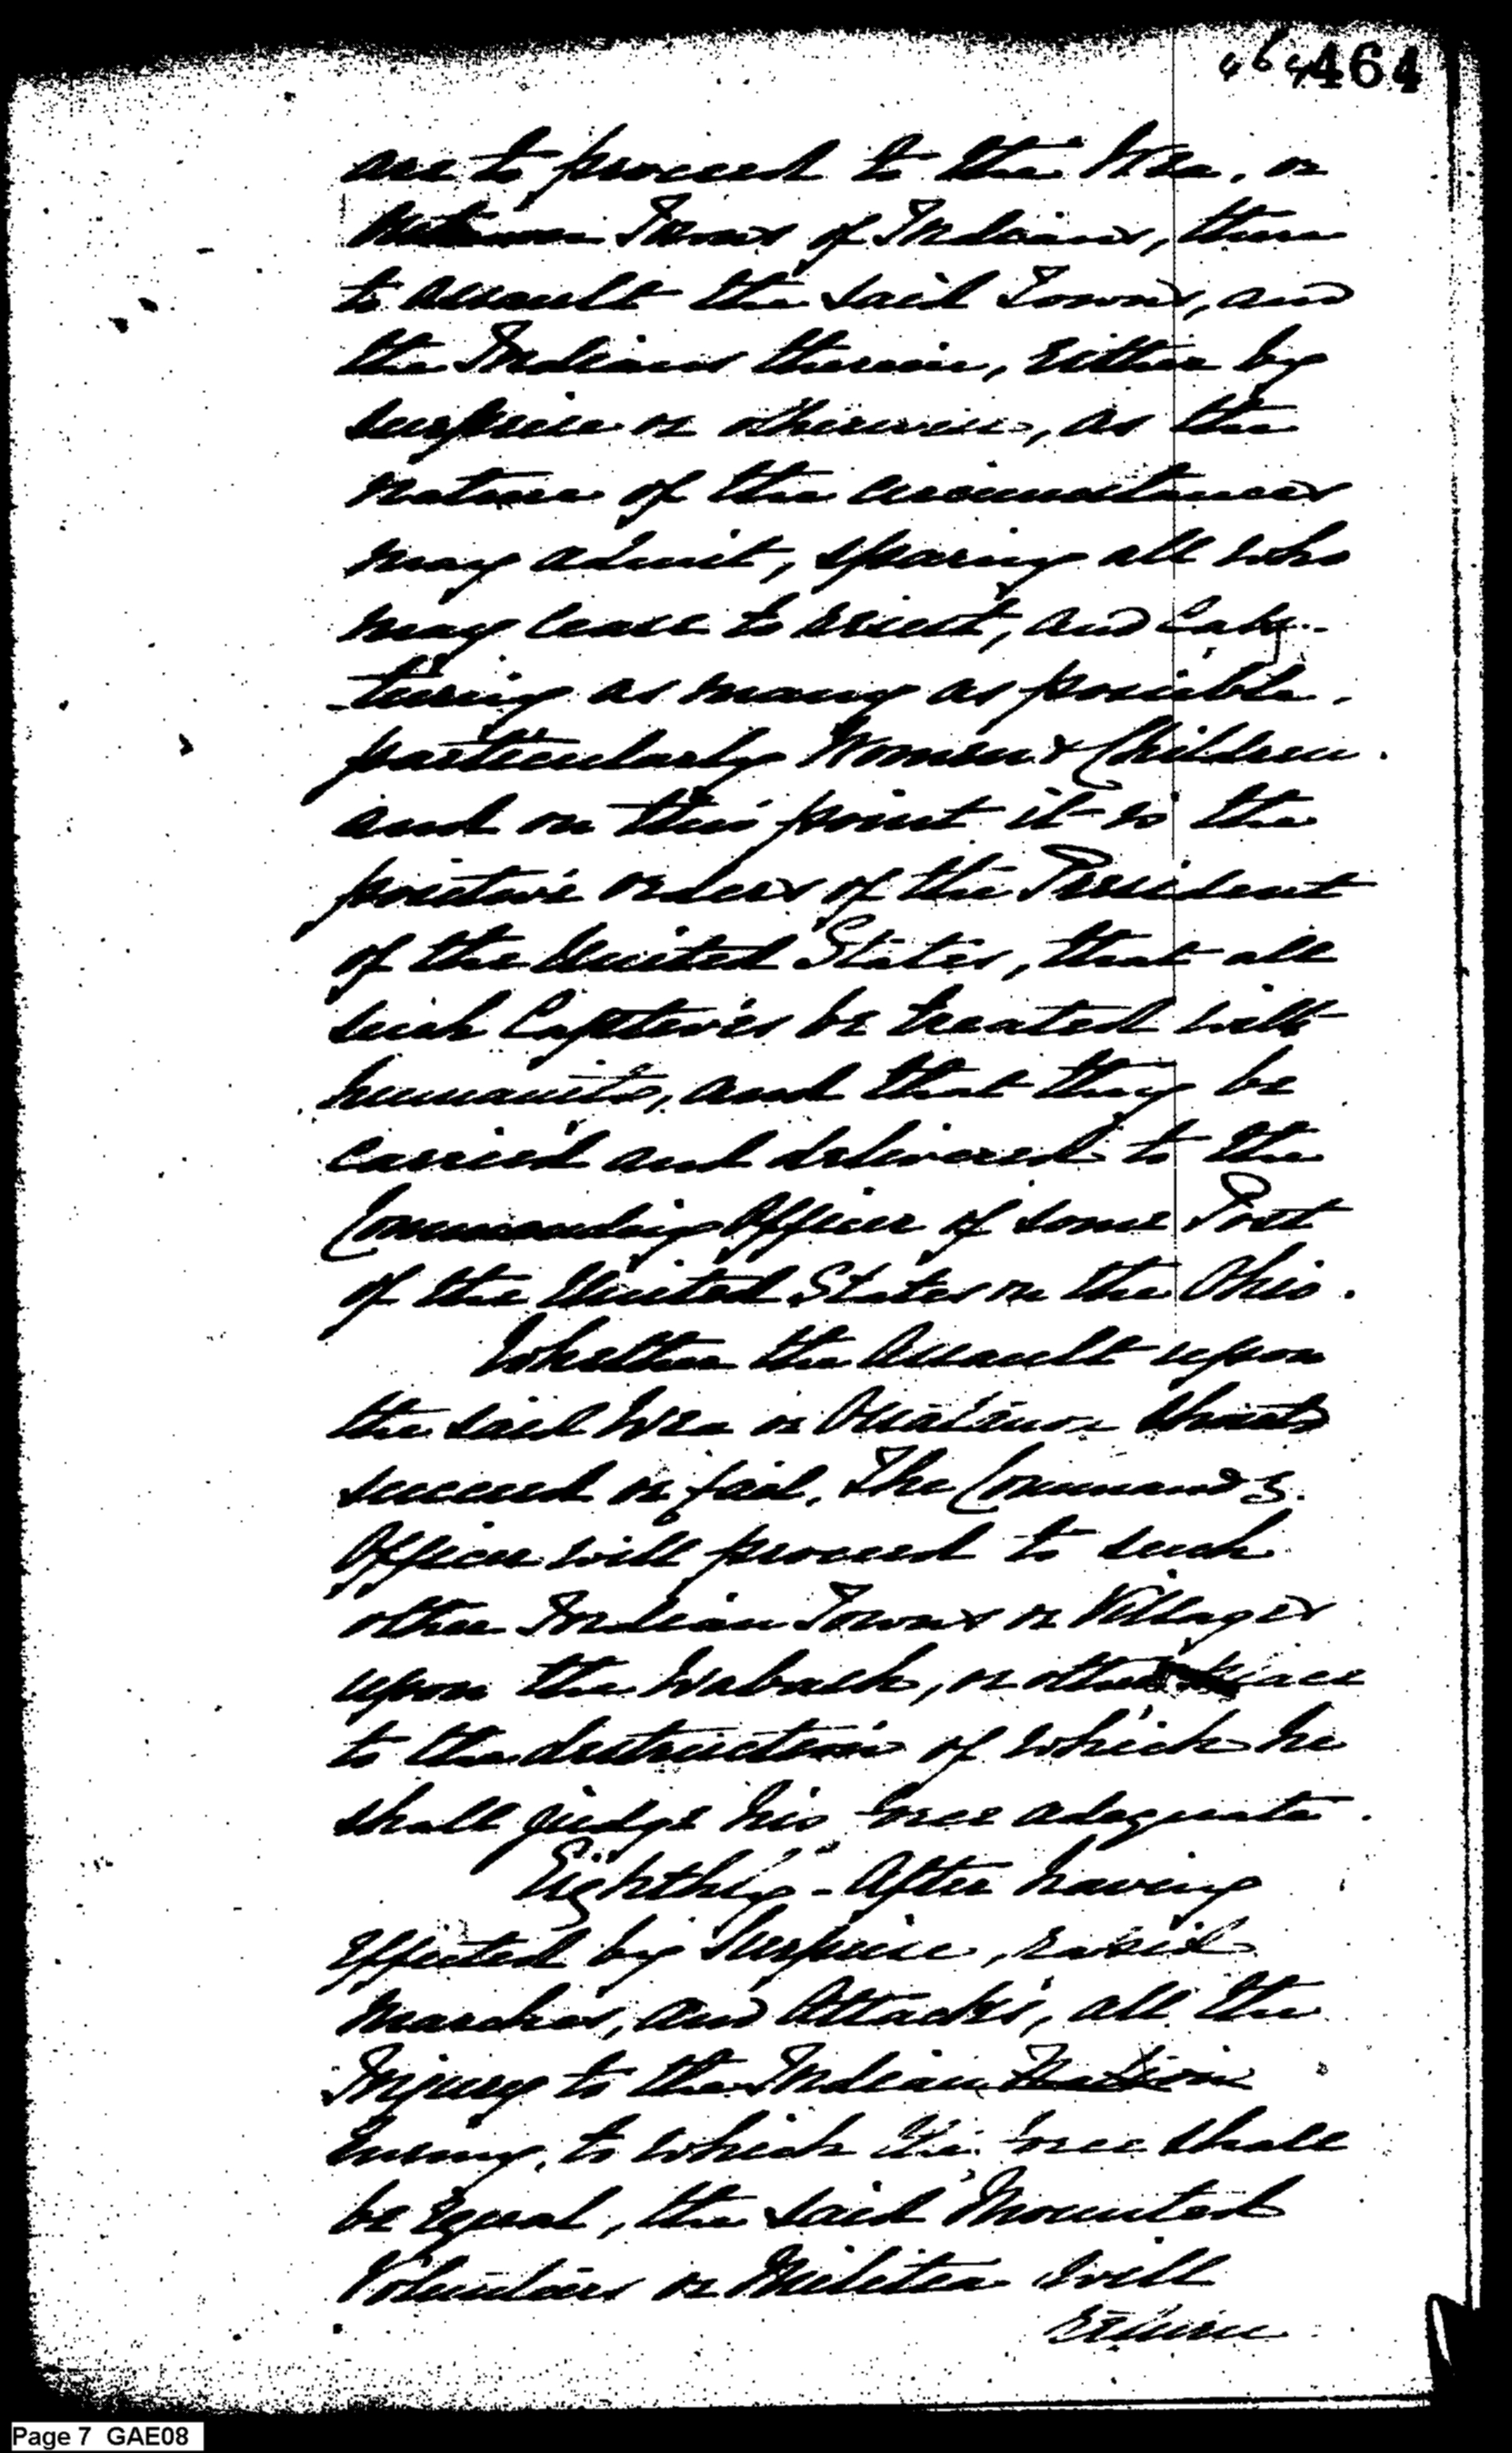 464 464
are to proceed to the Wea, or
Towns of Indians, there
to assault the said Towns, and
the Indians therein, either by
surprise or otherwise, as the
nature of the circumstances
may admit, sparing all who
may cease to resist, and Cap-
-turing as many as possible,
particularly Women & Children.
and on this point it is the
positive orders of the President
of the United States, that all
such Captives be treated with
humanity, and that they be
carried and delivered to the
Commanding Officer of some Post
of the United States on the Ohio.
Whether the Assault upon
the said Wea or Ouiatanon
succeed or fail, The Commandg.
Officer will proceed to such
other Indian Towns or Villages
upon the Wabash, or other place
to the destruction of which he
shall judge his force adequate.
Eighthly - After having
effected by Surprise, rapid
marches, and Attacks, all the
Injury to the Indian Nation
Enemy, to which the force shall
be Equal, the said Mounted
Volunteers or Militia will
return
Page 7 GAE08